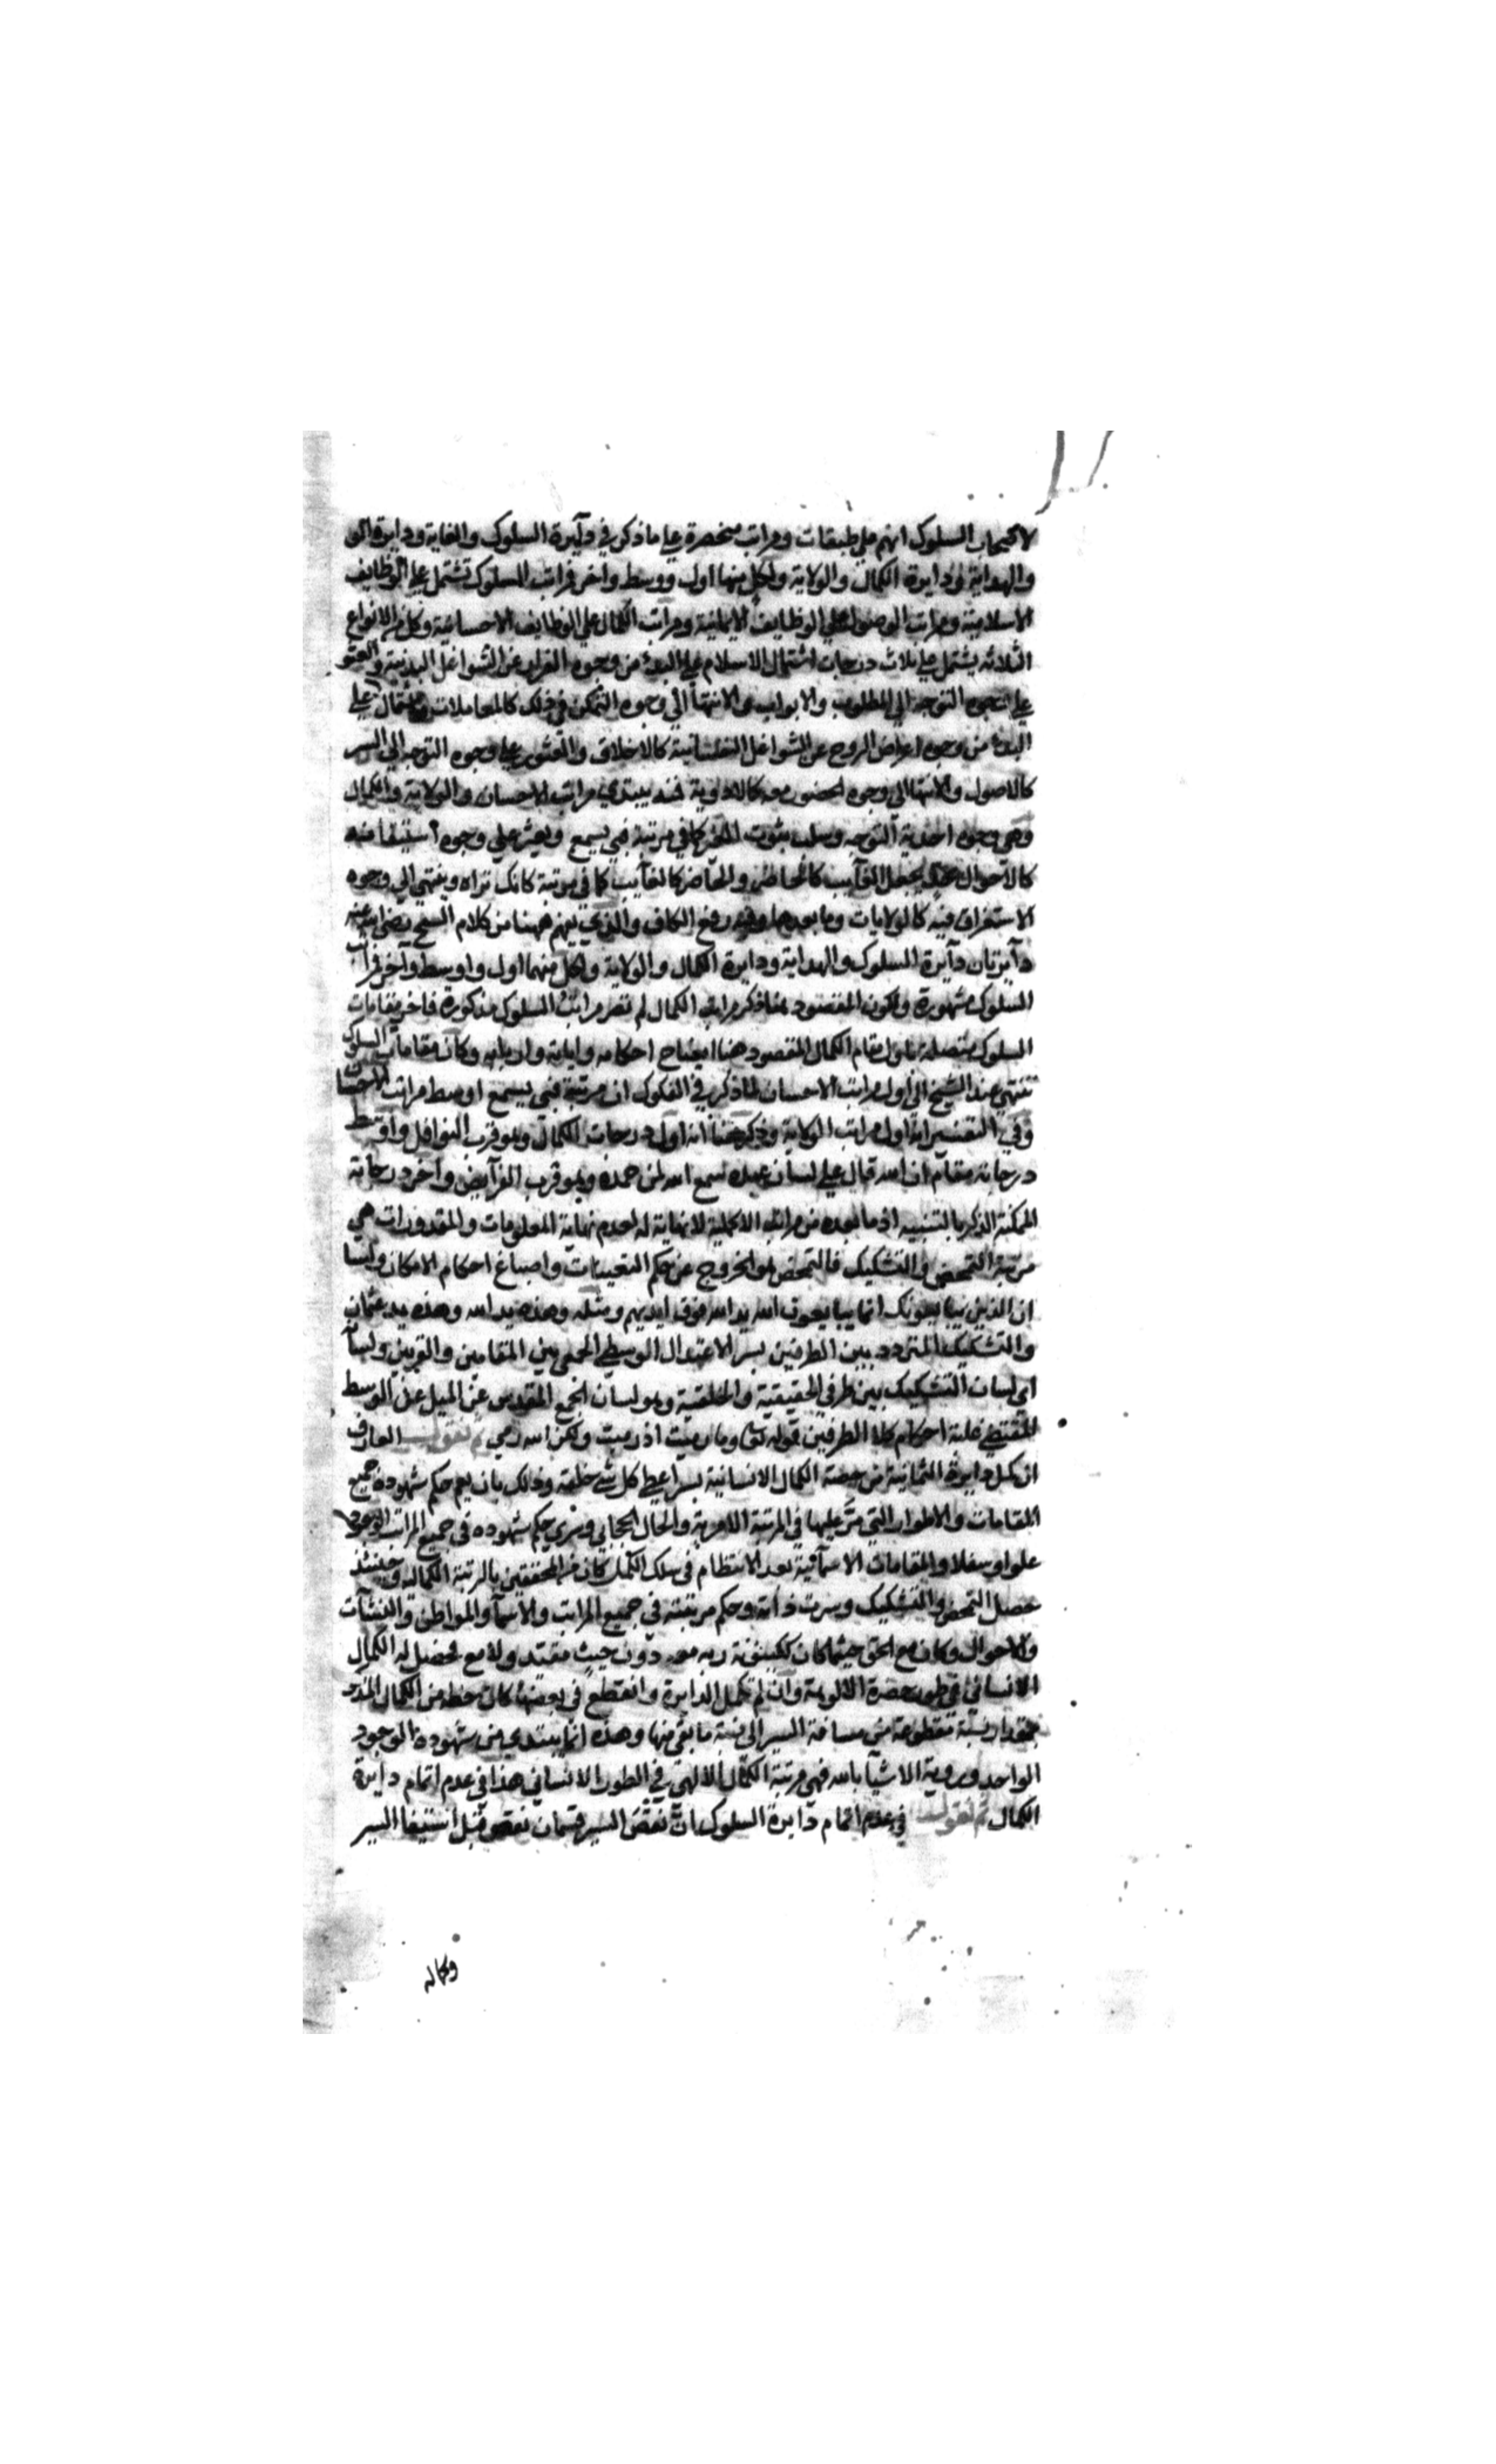 لاصحاب السلوك انهم على طبقات ومراتب منحصرة على ما ذكر في دآيرة السلوك والغاية ودايرة
والهداية ودايرة الكمال والولاية ولكل منها اول ووسط واخر فراتب السلوك تشتمل على الوظايف
الاسلامية ومراتب الوصول على الوظايف الايمانية ومراتب الكمال على الوظايف الاحسانية وكل من الانواع
الثلاثه يشتمل على ثلاث درجات اشتمال الاسلام على البدء من وجوه الفرار عن الشواغل البدنية والعثور
على وجوه التوجه الى المطلوب والابواب والانتهآ الى وجوه التمكن في ذلك كالمعاملات على
البدء من وجوه اعراض الروح عن الشواغل النفسانية كالاخلاق والعثور على وجوه التوجه الى السر
كالاصول والانتها الى وجوه الحضور معه كالاودية يبتدي مراتب الاحسان والولاية والكمال
وهي وجوه احدية التوجه وسلب ثبوت كما في مرتبة فبي يسمع ويعثر على وجوه استيفا منه
كالاحوال يجعل الغآيب كالحاضر والحاضر كالغآيب كما في مرتبة كانك تراه وينتهي الى وجوه
الاستغراق فيه كالولايات وما بعدها وفيه رفع الكاف والذي يفهم ههنا من كلام الشيخ رضي الله عنه
دآيرتان دآيرة السلوك والهداية ودايرة الكمال والولاية ولكل منهما اول واوسط وآخر فراتب
السلوك مشهورة ولكون المقصود هنا ذكر مراتب الكمال لم تصر مراتب السلوك مذكورة فاخر مقامات
السلوك متصلة باول مقام الكمال المقصود هنا ايضاح احكامه واياته واربابه وكان مقامات السلوك
تنتهي عند الشيخ الى اول مراتب الاحسان لما ذكر في الفكوك ان مرتبة فبي يسمع اوسط مراتب الاحسان
وفي التفسير انه اول مراتب الولاية وذكر هنا انه اول درجات الكمال وهو قرب النوافل واوسط
درجاته مقام ان الله قال على لسان عبده سمع الله لمن حمده وهو قرب الفرآيض واخر درجاته
الممكنة الذكر بالتنبيه اذ ما بعده من مراتب الاكملية لا نهاية له لعدم نهاية المعلومات والمقدورات هي
مرتبة التمحض والتشكيك فالتمحض هو الخروج عن حكم التعينات واصباغ احكام الامكان ولسانه
ان الذين يبايعونك انما يبايعون الله يد الله فوق ايديهم ومثله وهذه يد الله وهذه يد عثمان
والتشكيك المتردد بين الطرفين بسر الاعتدال الوسطى الجمعي بين المقامين والقربين ولسآنه
اي لسان التشكيك بين طرفي الحقيقية والخلقية وهو لسان الجمع المقدس عن الميل عن الوسط
المقتضي غلبة احكام كلا الطرفين قوله تعالى وما رميت اذ رميت ولكن الله رمى ثم نقول العارف
ان كمل دايرة الثمانية من حصة الكمال الانسانية بسر اعطى كل شي خلقه وذلك بان يعم حكم شهوده جميع
المقامات والاطوار التي مَرَّ عليها في المرتبة والحال الحجابي وسرى حكم شهوده في جميع المراتب الوجودية
علوا وسفلا والمقامات الاسمآئية بعد الانتظام في سلك الكمل كان من المحققين بالرتبة الكمالية وحينئذ
حصل التمحض والتشكيك وسرت ذاته وحكم مرتبته في جميع المراتب والاسمآ والمواطن والنشآت
والاحوال وكان مع الحق حيثما كان ككينونة ربه معه دون حيث مقيد ولا مع لحصل له الكمال
الانساني في طور حضرة الالوهة وان لم تكمل الدايرة وانقطع في بعضها كان حظه من الكمال المذكور
بمقدار نسبة مقطوعه من مسافة السير الى نسبة ما بقي منها وهذه انما يبتدي من شهوده الوجود
الواحد ورؤية الاشيآ بالله فهي مرتبة الكمال الالهي في الطور الانساني هذا في عدم اتمام دايرة
الكمال ثم نقول في عدم اتمام دآيرة السلوك ان نقض السير قسمان نقض قبل استيفا السير
وكماله